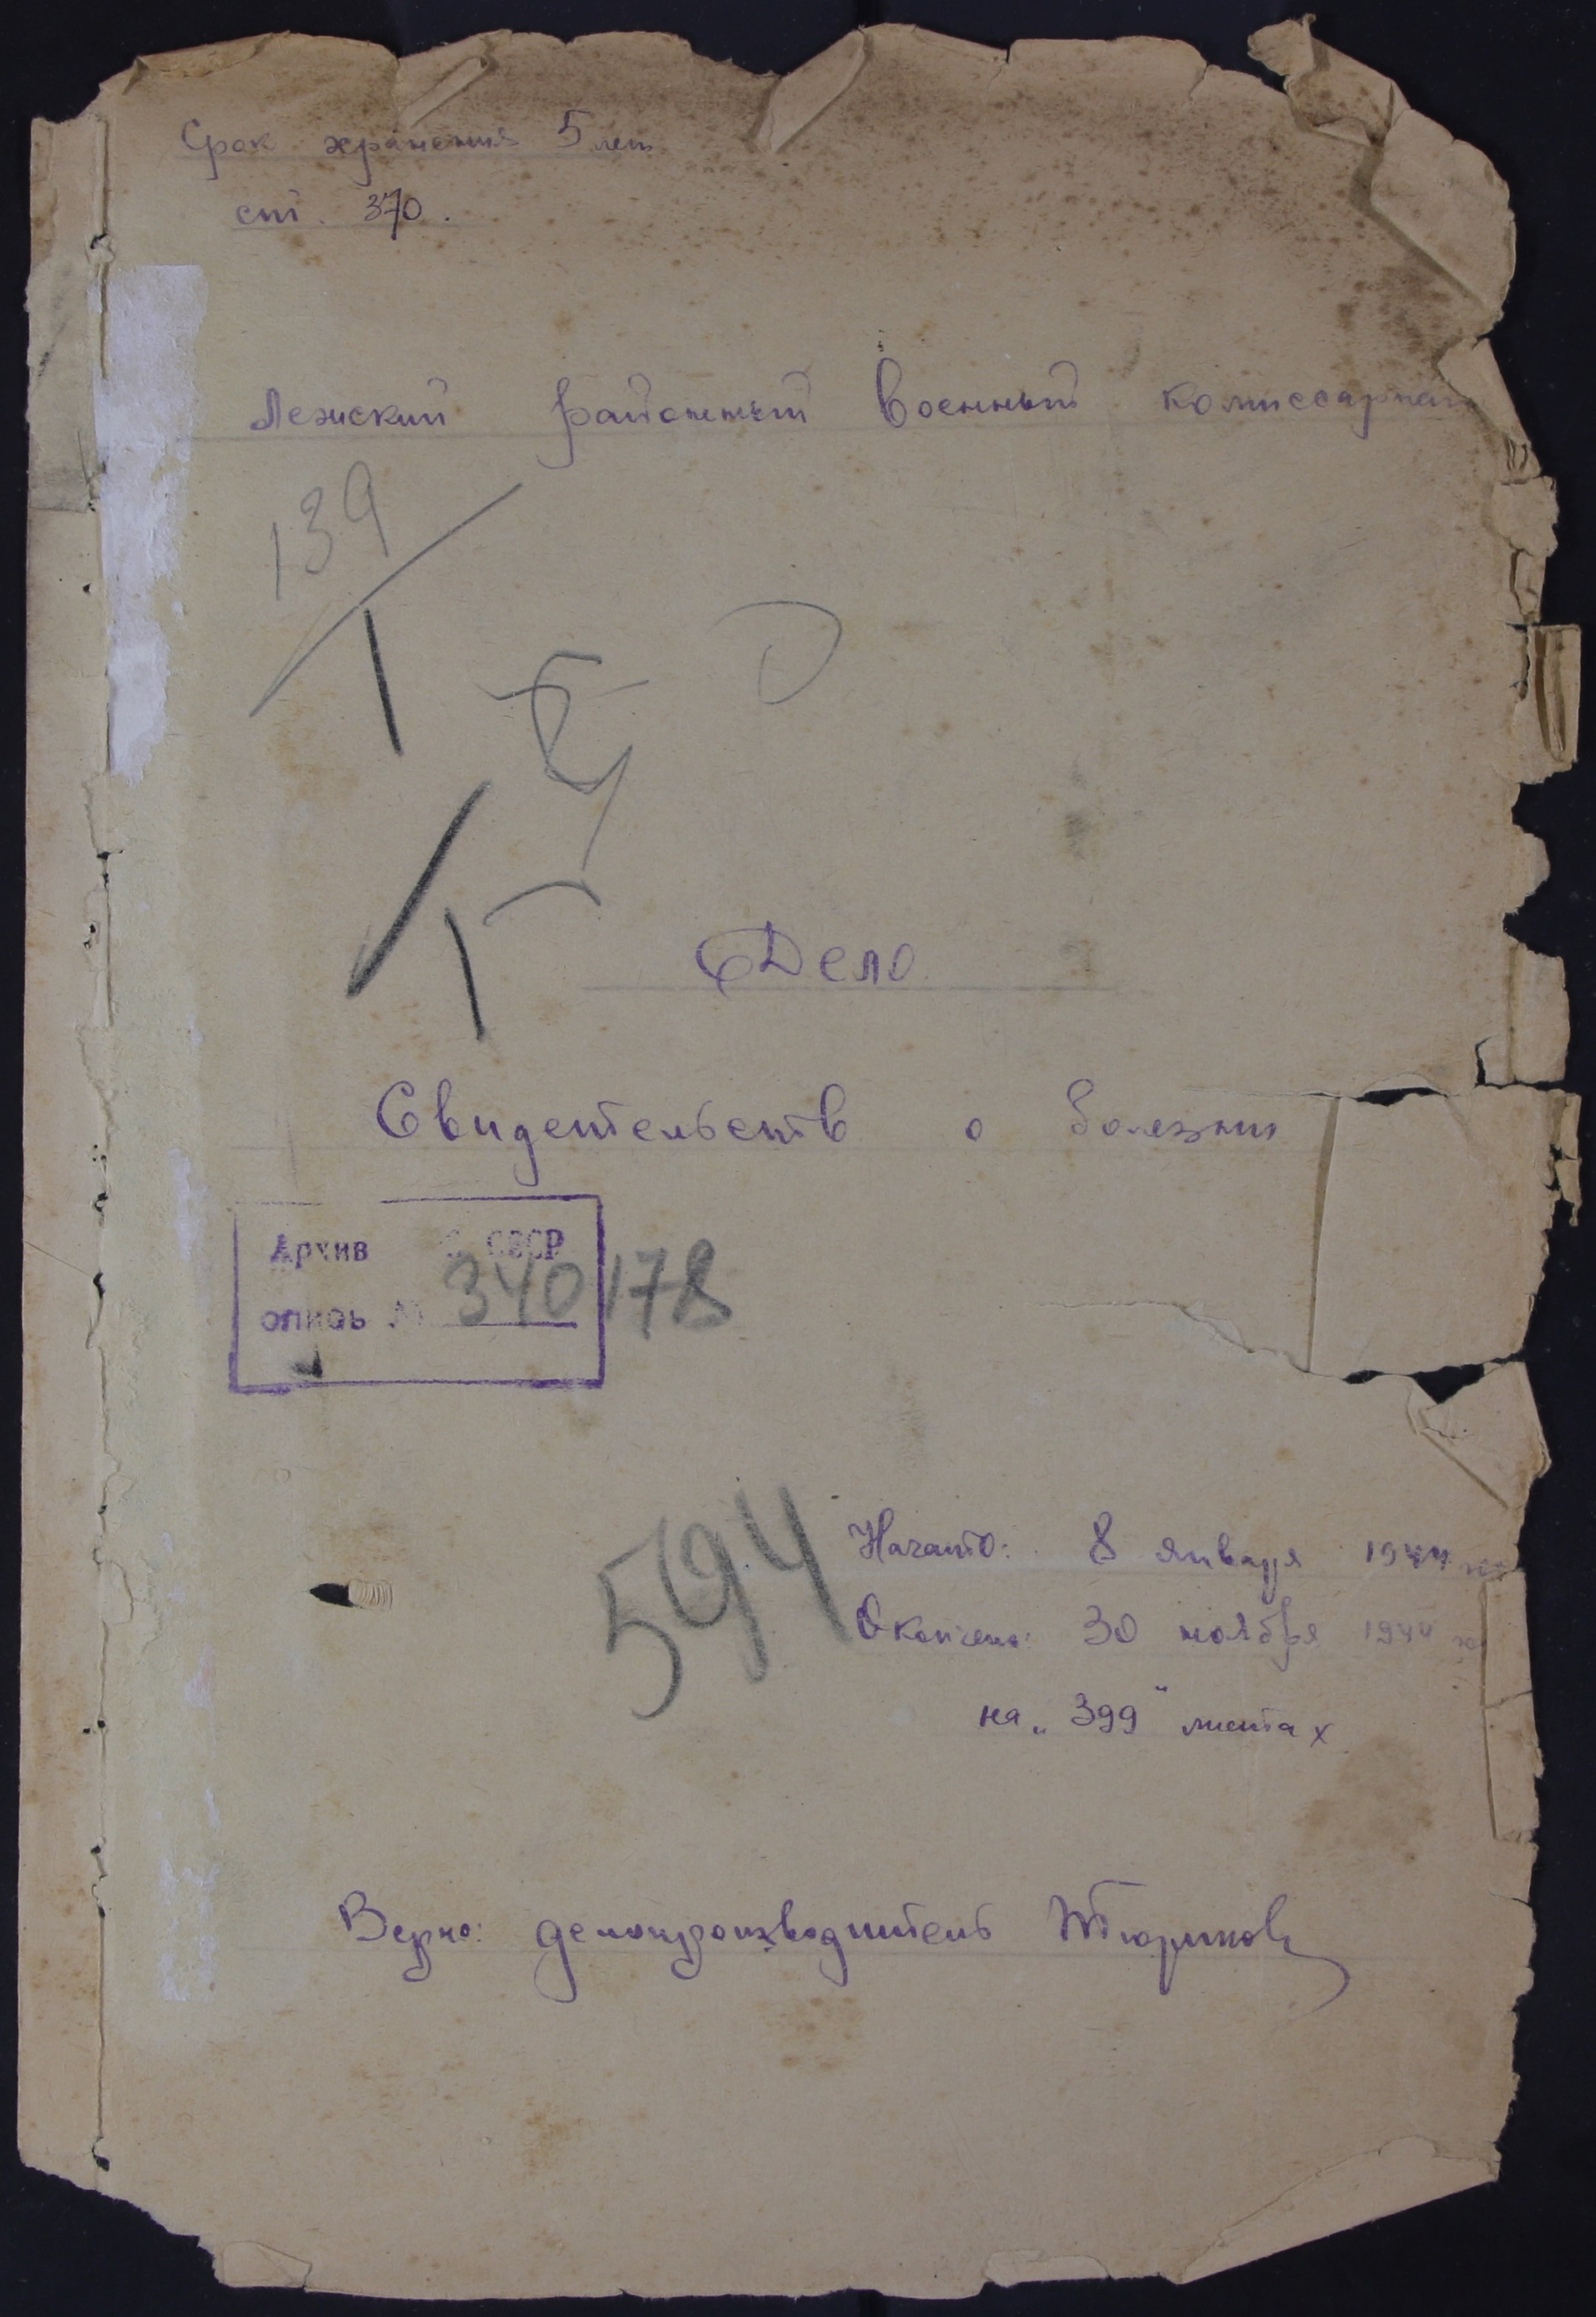 Срок хранения 5 лет
ст. 370.
Лежский районный военный комиссариат
139
1
Дело
Свидетельств о болезни
Архив СССР
опись № 340178
594
Начато: 8 января 1944
Окончено: 30 ноября 1944
на „399" листах
Верно: делопроизводитель